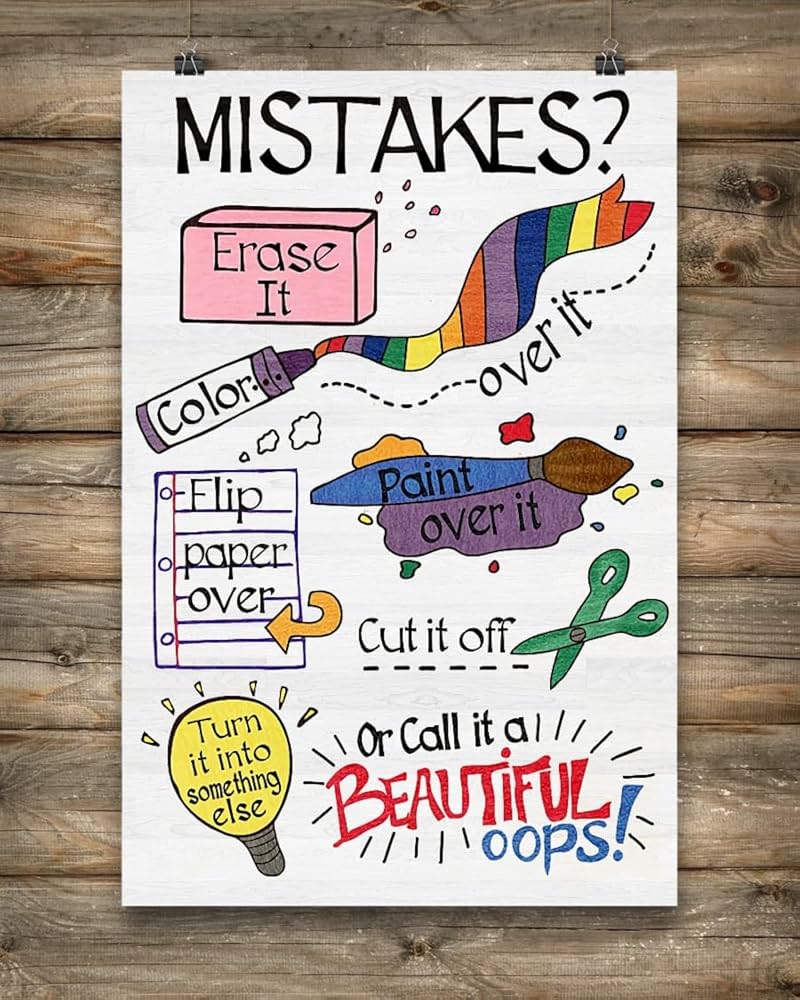 MISTAKES?
Erase
It
Color
over it
Flip
paper
over
Paint
over it
Cut it off
Turn
it into
something
else
Or Call it a
BEAUTIFUL
OOPS!